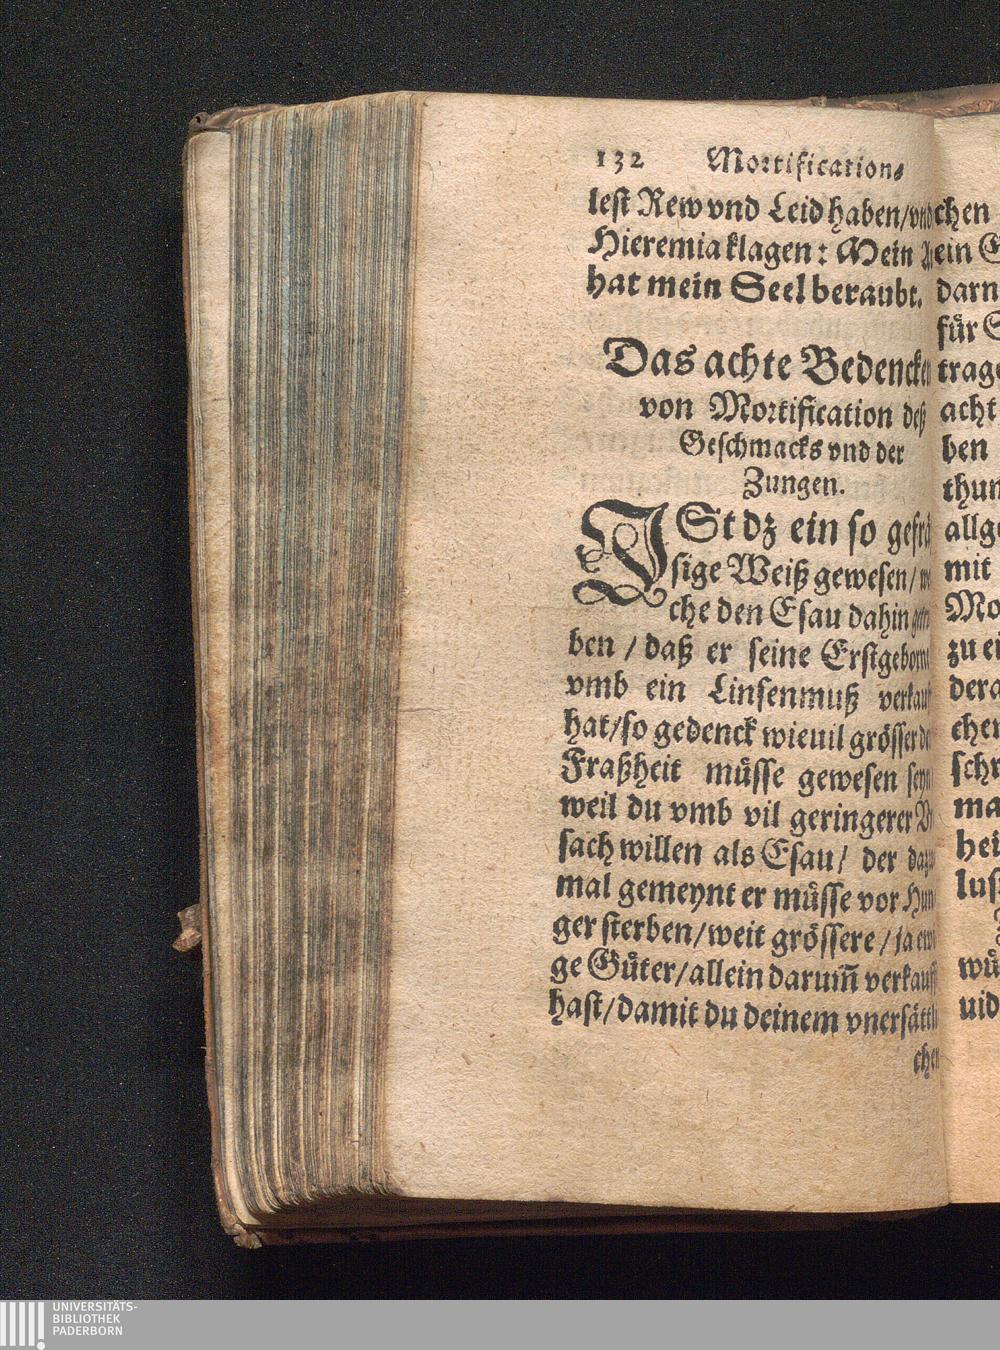 132 Mortification⸗
lest Rew vnd Leid haben/vnd
Hieremia klagen: Mein
hat mein Seel beraubt.
Das achte Bedencken
von Mortification deß
Geschmacks vnd der
Zungen.
ISt dz ein so gefrä
sige Weiß gewesen/
che den Esau dahin
ben / daß er seine
vmb ein Linsenmuß
hat/so gedenck wieuil grösser
Fraßheit müsse gewesen
weil du vmb vil geringerer
sach willen als Esau/ der
mal gemeynt er müsse vor Hun
ger sterben/weit grössere/ja
ge Güter/allein darum̃
hast/damit du deinem
chen
chen
ein
darn
für
acht
ben
mit
UNIVERSITÄTS-
BIBLIOTHEK
PADERBORN